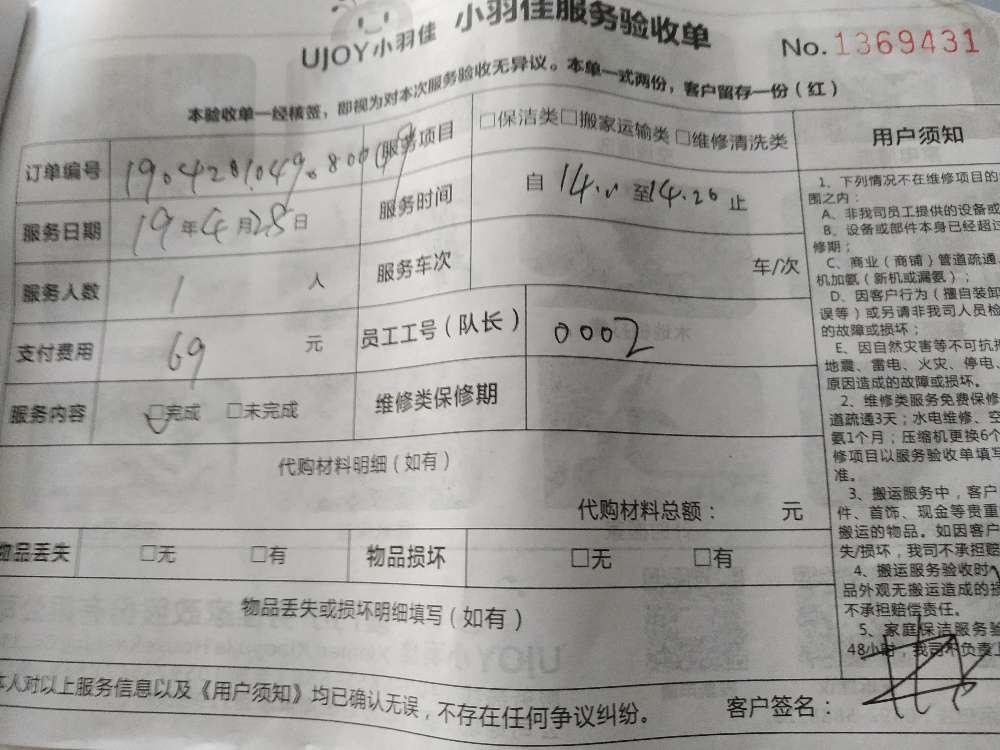 UJOY小羽佳 小羽佳服务验收单
No. 1369431
本验收单一经核签，即视为对本次服务验收无异议。本单一式两份，客户留存一份（红）
订单编号 服务项目 □保洁类□搬家运输类 □维修清洗类
服务日期 19年4月28日 服务时间 自 至14.20止
服务人数 1 人 服务车次 车/次
支付费用 69 元 员工工号（队长） 0002
服务内容 □完成 □未完成 维修类保修期
代购材料明细（如有）
代购材料总额： 元
物品丢失 □无 □有 物品损坏 □无 □有
物品丢失或损坏明细填写（如有）
本人对以上服务信息以及《用户须知》均已确认无误，不存在任何争议纠纷。
客户签名：
用户须知
1、下列情况不在维修项目的
围之内：
A、非我司员工提供的设备或
B、设备或部件本身已经超过
修期；
C、商业（商铺）管道疏通、
机加氨（新机或漏氨）；
D、因客户行为（擅自装卸
误等）或另请非我司人员检
的故障或损坏；
E、因自然灾害等不可抗拒
地震、雷电、火灾、停电、
原因造成的故障或损坏。
2、维修类服务免费保修
道疏通3天；水电维修、空
氨1个月；压缩机更换6个
修项目以服务验收单填写
准。
3、搬运服务中，客户
件、首饰、现金等贵重
搬运的物品。如因客户
失/损坏，我司不承担赔
4、搬运服务验收时
品外观无搬运造成的损
不承担赔偿责任。
5、家庭保洁服务验
48小时，我司不负责上